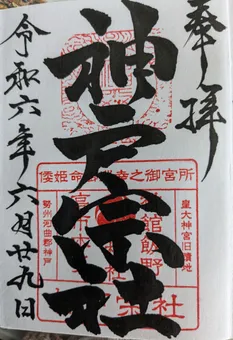 奉拝
神戸宗社
令和六年六月廿九日
倭姫命
幸之御宮所
皇大神宮旧蹟地
館飯野
勢州河曲郡神戸
宗社